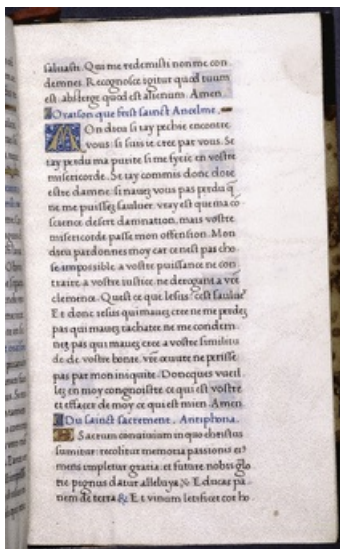 saluasti. Qui me redemisti non me con
demnes. Recognosce igitur quod tuum
est. absterge quod est alienum. Amen
Oraison que feist sainct Ancelme.
Mon dieu si iay pechie encontre
vous. si suis ie cree par vous. Se
iay perdu ma purite si me fyeie en vostre
misericorde. Se iay commis donc doie
estre damne. si nauez vous pas perdu q̃
ne me puissez sauluer. vray est que ma co
science desert damnation. mais vostre
misericorde passe mon offension. Mon
dieu pardonnes moy car ce nest pas cho
se impossible a vostre puissance ne con
traire a vostre iustice ne derogant a vr̃e
clemence. Quest ce que Iesus? cest saulue
Et donc iesus qui mauez cree ne me perdez
pas qui mauez rachate ne me condem
nez pas qui mauez cree a vostre similitu
de de vostre bonte. vr̃e œuure ne perisse
pas par mon iniquite. Doncques vueil
lez en moy congnoistre ce qui est vostre
et effacer de moy ce qui est mien. Amen
Du sainct sacrement. Antiphona.
Sacrum conuiuium in quo christus
sumitur. recolitur memoria passionis ei?
mens impletur gratia. et future nobis glo
rie pignus datur alleluya. Educas pa
nem de terra & Et vinum letificet cor ho